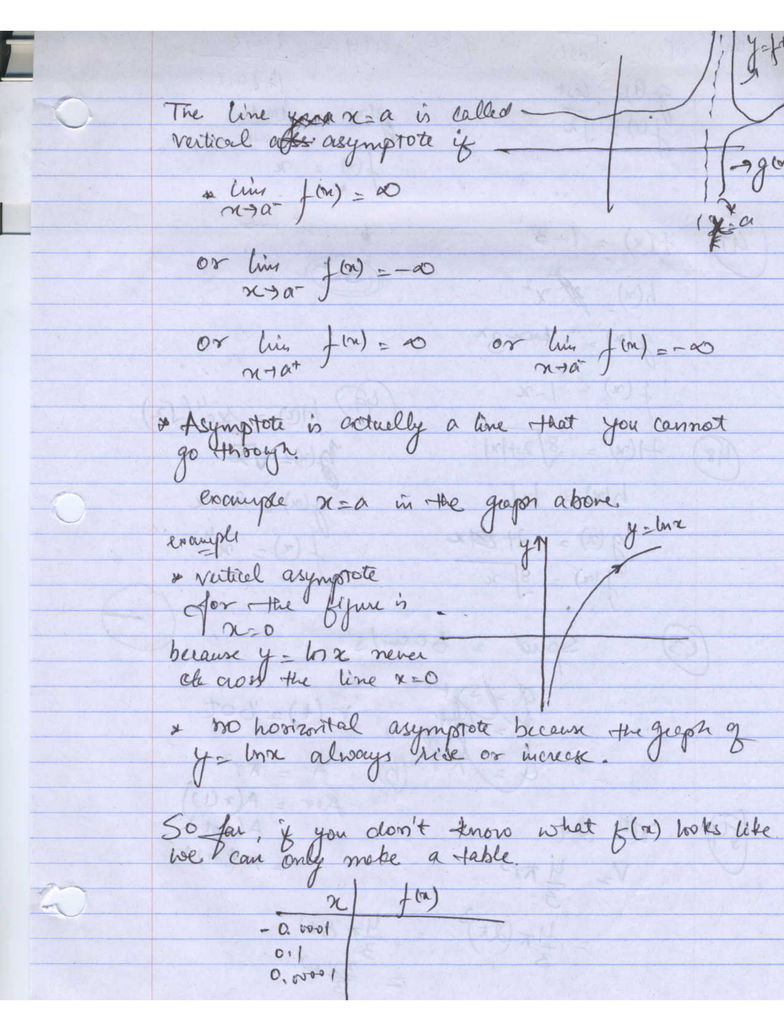 The line x=a is called
vertical asymptote if
y=f
→g(x
x=a
* lim x→a⁻ f(x) = ∞
or lim x→a⁻ f(x) = -∞
or lim x→a⁺ f(x) = ∞ or lim x→a⁻ f(x) = -∞
* Asymptote is actually a line that you cannot
go through.
example x=a in the graph above.
example
y
y=lnx
* vertical asymptote
for the figure is
x=0
because y = lnx never
cross the line x=0
* no horizontal asymptote because the graph of
y= lnx always rise or increase.
So far, if you don't know what f(x) looks like
we can only make a table.
x f(x)
-0.0001
0.1
0.00001